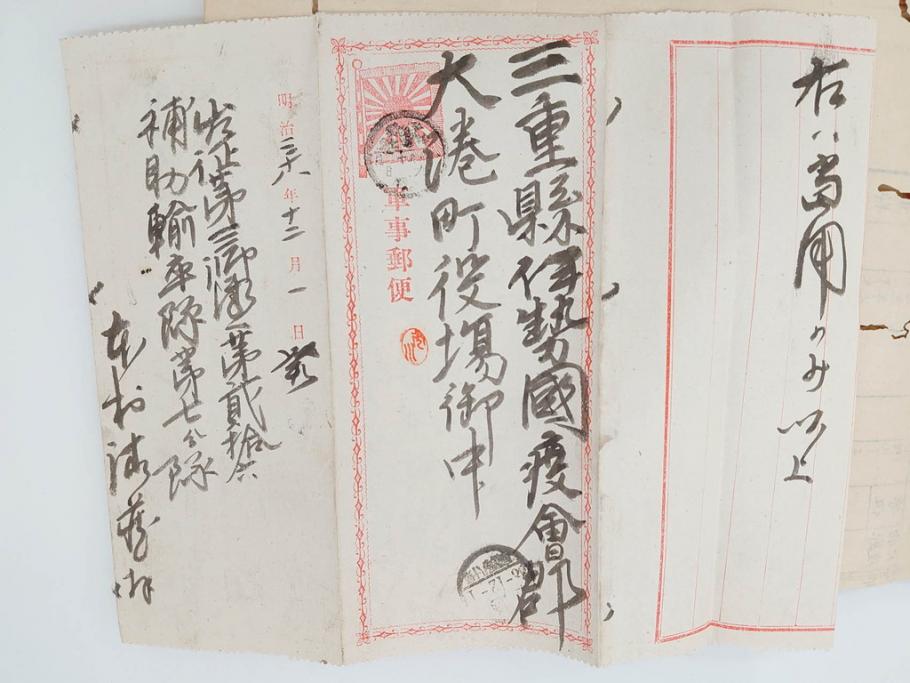 右ハ當用のみ 以上
三重縣伊勢國度會郡
大湊町役場御中
軍事郵便
明治三八年十二月一日
出征第三師團第貳拾六
補助輸卒隊第七分隊